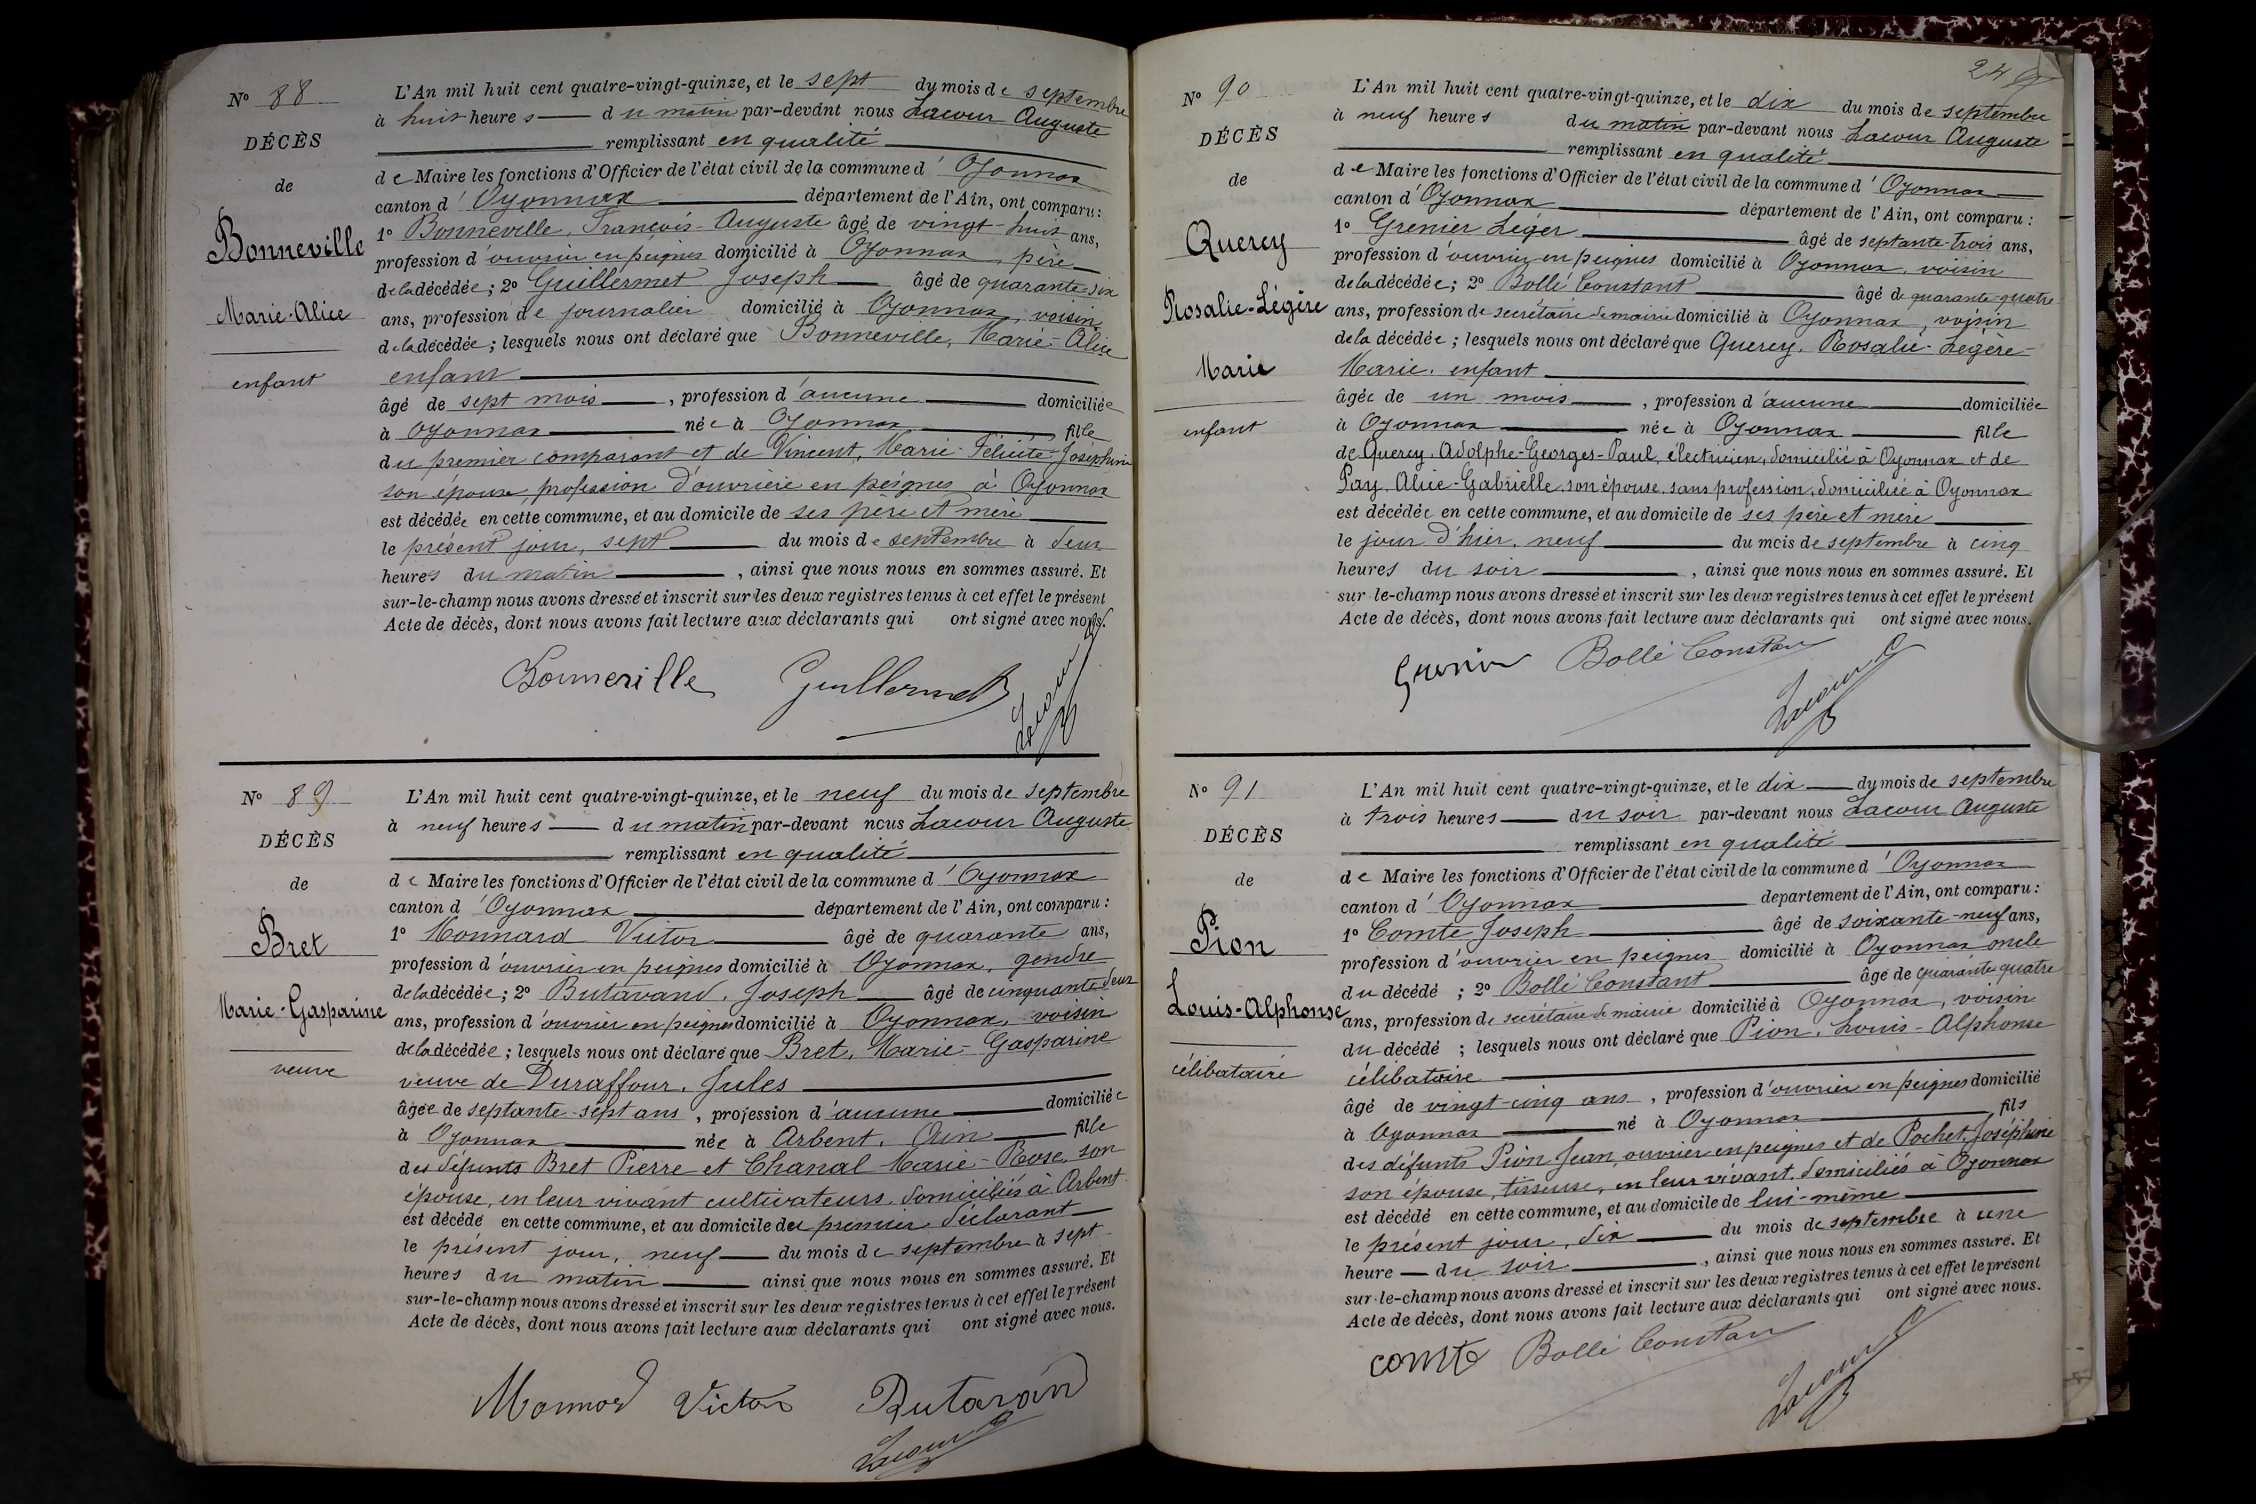 Nº 88
DÉCÈS
de
Bonneville
Marie-Alice
enfant
L'An mil huit cent quatre-vingt-quinze, et le sept du mois de septembre
à huit heures du matin par-devant nous Lacour Auguste
remplissant en qualité
de Maire les fonctions d'Officier de l'état civil de la commune d'Oyonnax
canton d'Oyonnax département de l'Ain, ont comparu:
1º Bonneville, François-Auguste âgé de vingt-huit ans,
profession d'ouvrier en peignes domicilié à Oyonnax, père
de la décédée; 2º Guillermet Joseph âgé de quarante-six
ans, profession de journalier domicilié à Oyonnax, voisin
de la décédée; lesquels nous ont déclaré que Bonneville, Marie-Alice
enfant
âgé de sept mois, profession d'aucune domiciliée
à Oyonnax née à Oyonnax fille
du premier comparant et de Vincent, Marie-Félicité-Joséphine
son épouse, profession d'ouvrière en peignes à Oyonnax
est décédée en cette commune, et au domicile de ses père et mère
le présent jour, sept du mois de septembre à deux
heures du matin, ainsi que nous nous en sommes assuré. Et
sur-le-champ nous avons dressé et inscrit sur les deux registres tenus à cet effet le présent
Acte de décès, dont nous avons fait lecture aux déclarants qui ont signé avec nous.
Bonneville Guillermet
Lacour
Nº 89
DÉCÈS
de
Bret
Marie-Gasparine
veuve
L'An mil huit cent quatre-vingt-quinze, et le neuf du mois de septembre
à neuf heures du matin par-devant nous Lacour Auguste
remplissant en qualité
de Maire les fonctions d'Officier de l'état civil de la commune d'Oyonnax
canton d'Oyonnax département de l'Ain, ont comparu:
1º Monnard Victor âgé de quarante ans,
profession d'ouvrier en peignes domicilié à Oyonnax, gendre
de la décédée; 2º Butavand, Joseph âgé de cinquante-deux
ans, profession d'ouvrier en peignes domicilié à Oyonnax, voisin
de la décédée; lesquels nous ont déclaré que Bret, Marie-Gasparine
veuve de Duraffour, Jules
âgée de septante-sept ans, profession d'aucune domiciliée
à Oyonnax née à Arbent, Ain fille
des défunts Bret Pierre et Chanal Marie-Rose, son
épouse, en leur vivant cultivateurs, domiciliés à Arbent
est décédé en cette commune, et au domicile du premier déclarant
le présent jour, neuf du mois de septembre à sept
heures du matin ainsi que nous nous en sommes assuré. Et
sur-le-champ nous avons dressé et inscrit sur les deux registres tenus à cet effet le présent
Acte de décès, dont nous avons fait lecture aux déclarants qui ont signé avec nous.
Monnard Victor Butavan
Lacour
Nº 90
DÉCÈS
de
Quercy
Rosalie-Légère
Marie
enfant
L'An mil huit cent quatre-vingt-quinze, et le dix du mois de septembre
à neuf heures du matin par-devant nous Lacour Auguste
remplissant en qualité
de Maire les fonctions d'Officier de l'état civil de la commune d'Oyonnax
canton d'Oyonnax département de l'Ain, ont comparu:
1º Grenier Léger âgé de septante-trois ans,
profession d'ouvrier en peignes domicilié à Oyonnax, voisin
de la décédée; 2º Bollé Constant âgé de quarante-quatre
ans, profession de secrétaire de mairie domicilié à Oyonnax, voisin
de la décédée; lesquels nous ont déclaré que Quercy, Rosalie-Légère-
Marie, enfant
âgée de un mois, profession d'aucune domiciliée
à Oyonnax née à Oyonnax fille
de Quercy, Adolphe-Georges-Paul, électricien, domicilié à Oyonnax et de
Pay, Alice-Gabrielle, son épouse, sans profession, domiciliée à Oyonnax
est décédée en cette commune, et au domicile de ses père et mère
le jour d'hier, neuf du mois de septembre à cinq
heures du soir, ainsi que nous nous en sommes assuré. Et
sur-le-champ nous avons dressé et inscrit sur les deux registres tenus à cet effet le présent
Acte de décès, dont nous avons fait lecture aux déclarants qui ont signé avec nous.
Grenier Bollé Constan
Lacour
Nº 91
DÉCÈS
de
Pion
Louis-Alphonse
célibataire
L'An mil huit cent quatre-vingt-quinze, et le dix du mois de septembre
à trois heures du soir par-devant nous Lacour Auguste
remplissant en qualité
de Maire les fonctions d'Officier de l'état civil de la commune d'Oyonnax
canton d'Oyonnax département de l'Ain, ont comparu:
1º Comte Joseph âgé de soixante-neuf ans,
profession d'ouvrier en peignes domicilié à Oyonnax oncle
du décédé; 2º Bollé Constant âgé de quarante quatre
ans, profession de secrétaire de mairie domicilié à Oyonnax, voisin
du décédé; lesquels nous ont déclaré que Pion, Louis-Alphonse
célibataire
âgé de vingt-cinq ans, profession d'ouvrier en peignes domicilié
à Oyonnax né à Oyonnax fils
des défunts Pion Jean, ouvrier en peignes et de Pochet, Joséphine
son épouse, tisseuse, en leur vivant, domiciliés à Oyonnax
est décédé en cette commune, et au domicile de lui-même
le présent jour, dix du mois de septembre à une
heure du soir, ainsi que nous nous en sommes assuré. Et
sur-le-champ nous avons dressé et inscrit sur les deux registres tenus à cet effet le présent
Acte de décès, dont nous avons fait lecture aux déclarants qui ont signé avec nous.
Comte Bollé Constan
Lacour